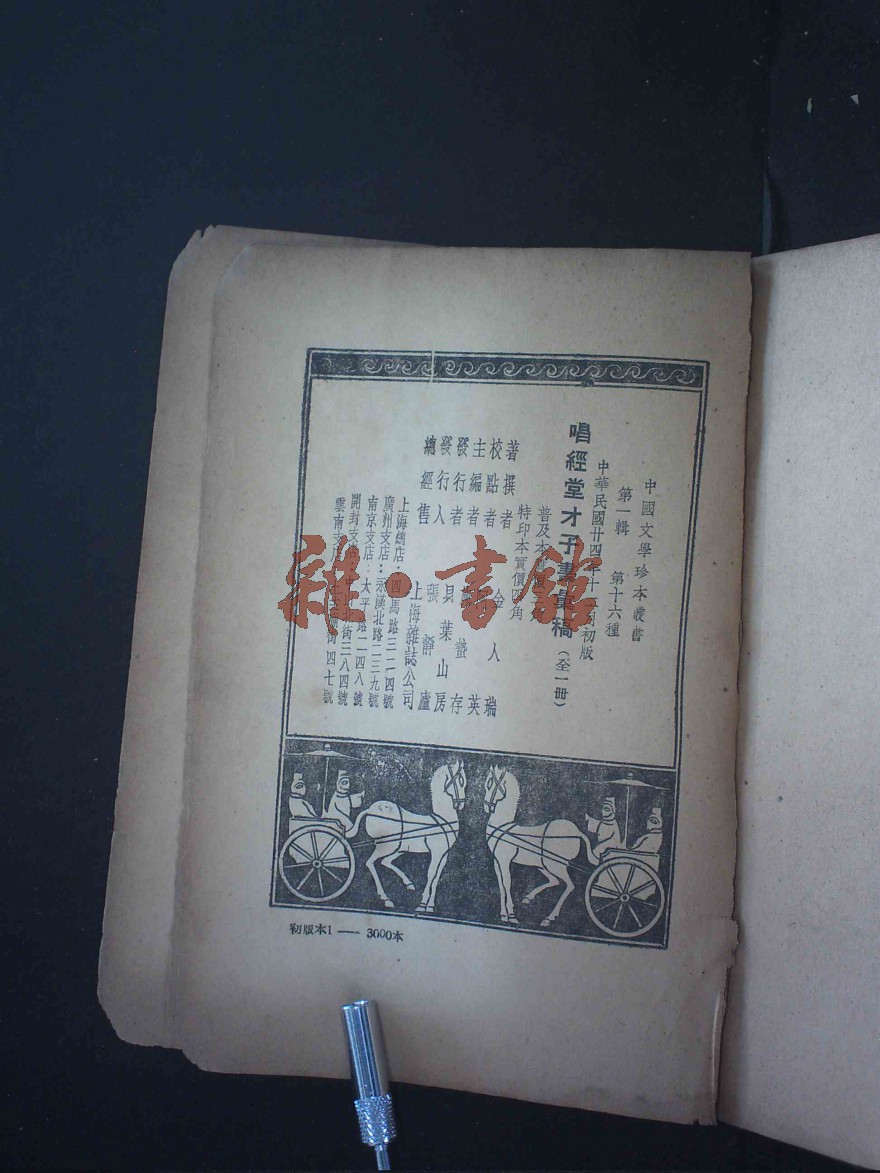 中國文學珍本叢書
第一輯 第十六種
中華民國廿四年十 月初版
唱經堂才子書彙稿(全一冊)
普及本
特印本實價四角
著撰者 金人瑞
校點者 英
主編者 蟄存
發行者 貝葉山房
發行人 張靜廬
總經售 上海雜誌公司
上海總店:四馬路三二四號
廣州支店:永漢北路二三九號
南京支店:太平路二一四八號
開封支店 北街三八四號
雲南支店 四七號
初版本1——3000本
雜·書館